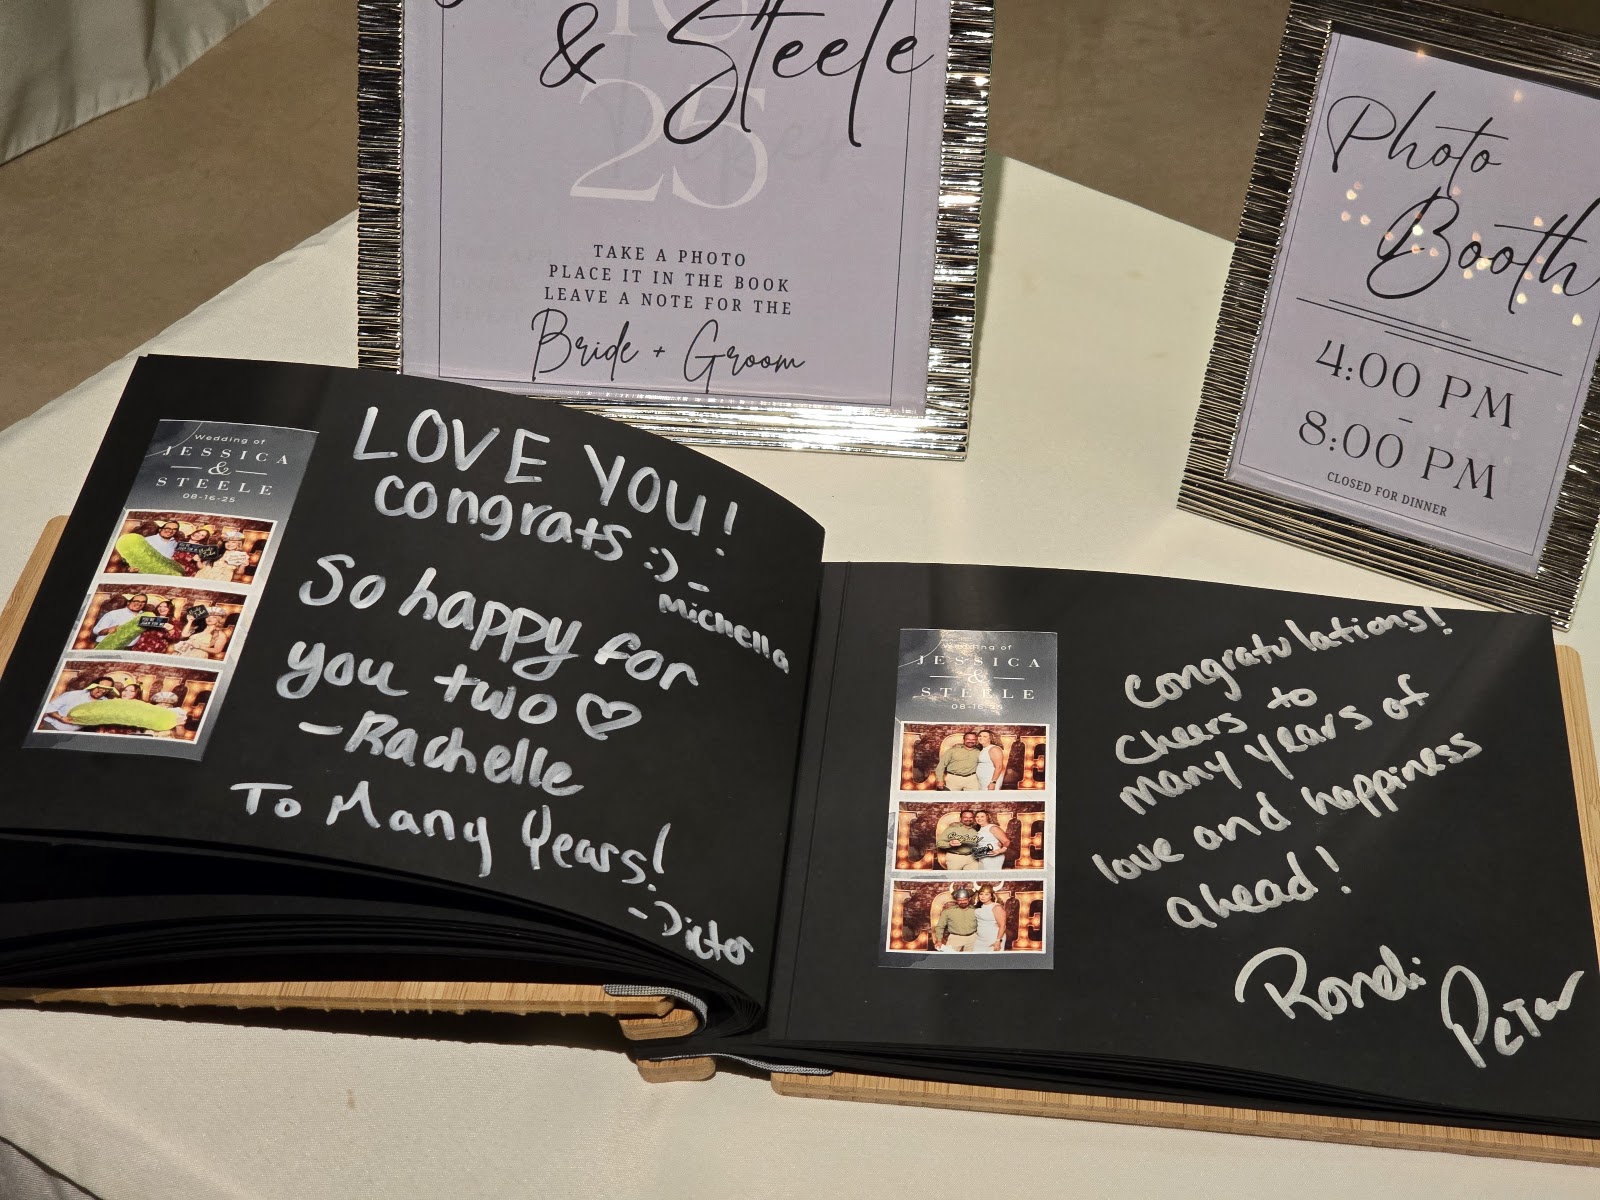 & Steele
25
TAKE A PHOTO
PLACE IT IN THE BOOK
LEAVE A NOTE FOR THE
Bride + Groom
Photo
Booth
4:00 PM
-
8:00 PM
CLOSED FOR DINNER
Wedding of
JESSICA
&
STEELE
08-16-25
LOVE YOU!
congrats :) -
Michella
So happy for
you two ♡
- Rachelle
To Many Years!
Wedding of
JESSICA
&
STEELE
08-16-25
Congratulations!
Cheers to
many years of
love and happiness
ahead!
Rondi
Peter